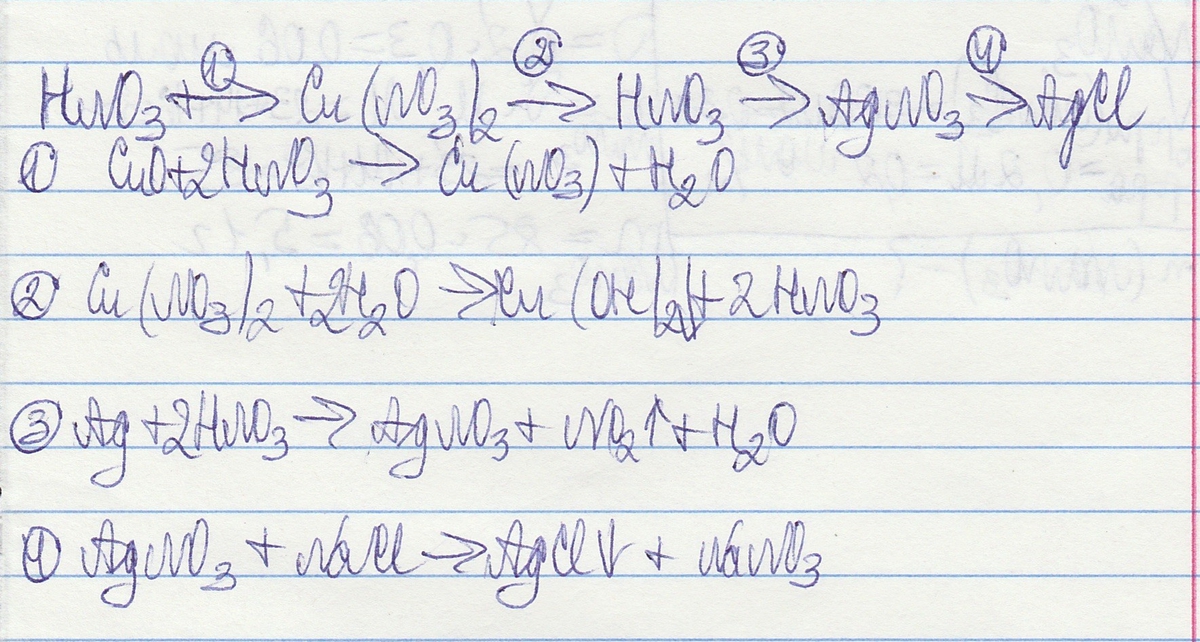 HNO₃ ①→ Cu(NO₃)₂ ②→ HNO₃ ③→ AgNO₃ ④→ AgCl
① CuO+2HNO₃ → Cu(NO₃) + H₂O
② Cu(NO₃)₂ + 2H₂O → Cu(OH)₂↓ + 2HNO₃
③ Ag + 2HNO₃ → AgNO₃ + NO₂↑ + H₂O
④ AgNO₃ + NaCl → AgCl↓ + NaNO₃